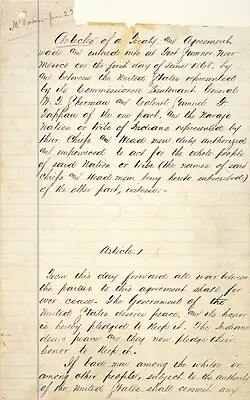 Articles of a Treaty and Agreement
made and entered into at Fort Sumner New
Mexico on the first day of June 1868, by
and between the United States represented
by its Commissioners Lieutenant General
W. T. Sherman and Colonel Samuel F.
Tappan of the one part, and the Navajo
Nation or tribe of Indians represented by
their Chiefs and Head men duly authorized
and empowered to act for the whole people
of said Nation or tribe (the names of said
Chiefs and Head men being hereto subscribed)
of the other part, witness:-
Article. 1
From this day forward all war between
the parties to this agreement shall for-
ever cease. The Government of the
United States desires peace, and its honor
is hereby pledged to keep it. The Indians
desire peace and they now pledge their
honor to keep it.
If bad men among the whites or
among other people, subject to the authority
of the United States shall commit any